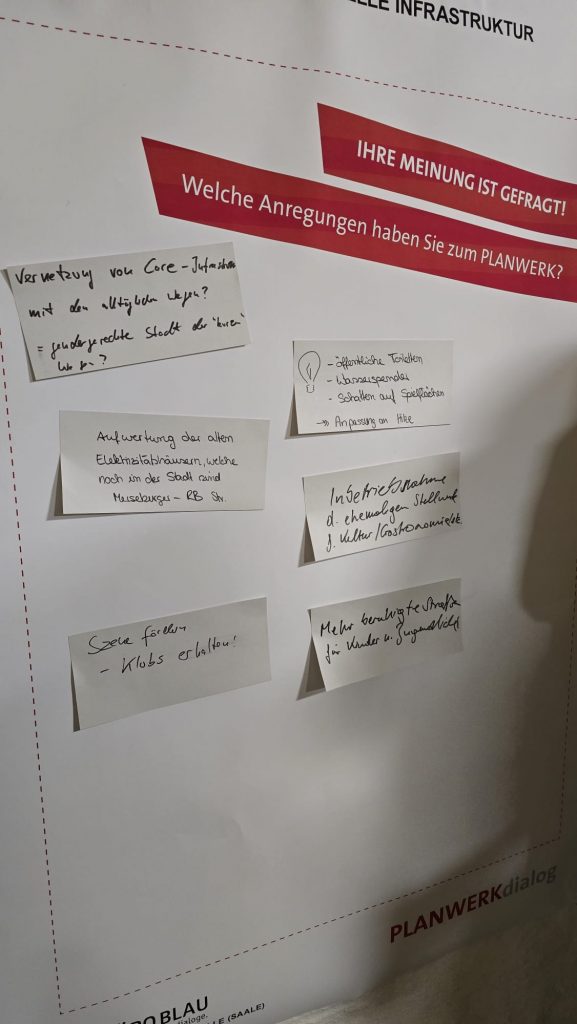 ELLE INFRASTRUKTUR
IHRE MEINUNG IST GEFRAGT!
Welche Anregungen haben Sie zum PLANWERK?
Vernetzung von Care-Infrastruk
mit den alltäglichen Wegen?
= gendergerechte Stadt der "kurzen"
Wege?
- öffentliche Toiletten
- Wasserspender
- Schatten auf Spielflächen
->> Anpassung an Hitze
Aufwertung der alten
Elektrizitätshäusern, welche
noch in der Stadt sind
Merseburger - RB Str.
Inbetriebnahme
d. ehemaligen Stellwerk
f. Kultur/Gastronomie/etc.
Szene fördern
- Klubs erhalten!
Mehr beruhigte Straße
für Kinder u. Jugendliche
PLANWERKdialog
RO BLAU
dialoge.
LE (SAALE)